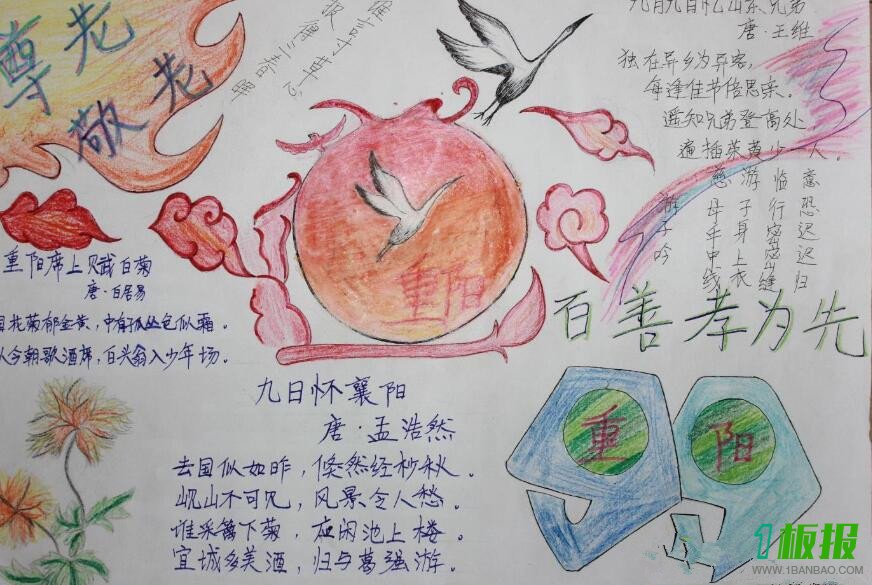 尊老
敬老
谁言寸草心
报得三春晖
九月九日忆山东兄弟
唐·王维
独在异乡为异客，
每逢佳节倍思亲。
遥知兄弟登高处，
遍插茱萸少一人。
游子吟
慈母手中线
游子身上衣
临行密密缝
意恐迟迟归
重阳
百善孝为先
重阳席上赋白菊
唐·白居易
花菊郁金黄，中有孤丛色似霜。
似今朝歌酒席，白头翁入少年场。
九日怀襄阳
唐·孟浩然
去国似如昨，倏然经杪秋。
岘山不可见，风景令人愁。
谁采篱下菊，应闲池上楼。
宜城多美酒，归与葛强游。
重 阳
1板报
WWW.1BANBAO.COM